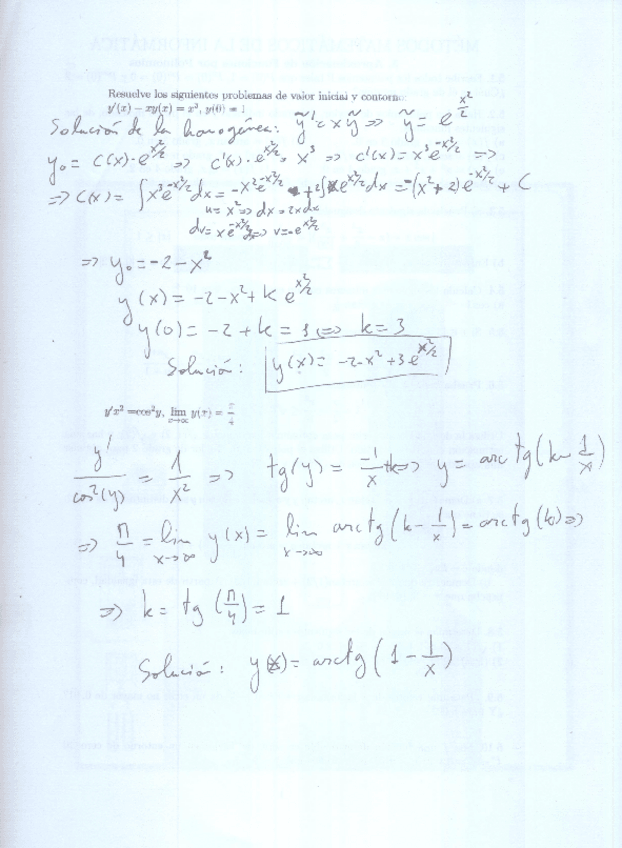 Resuelve los siguientes problemas de valor inicial y contorno:
y'(x) − xy(x) = x³, y(0) = 1
Solución de la homogénea: ỹ' = xỹ => ỹ = e^(x²/2)
y₀ = C(x)·e^(x²/2) => C'(x)·e^(x²/2) = x³ => C'(x) = x³e^(-x²/2) =>
=> C(x) = ∫x³e^(-x²/2)dx = -x²e^(-x²/2) + 2∫xe^(-x²/2)dx = -(x²+2)e^(-x²/2) + C
u = x² => dx = 2xdx
dv = xe^(-x²/2)dx => v = -e^(-x²/2)
=> y₀ = -2 - x²
y(x) = -2 - x² + k e^(x²/2)
y(0) = -2 + k = 1 <=> k = 3
Solución: y(x) = -2 - x² + 3e^(x²/2)
y'x² = cos²y, lim x→∞ y(x) = π/4
y'/cos²(y) = 1/x² => tg(y) = -1/x + k => y = arctg(k - 1/x)
=> π/4 = lim x→∞ y(x) = lim x→∞ arctg(k - 1/x) = arctg(k) =>
=> k = tg(π/4) = 1
Solución: y(x) = arctg(1 - 1/x)